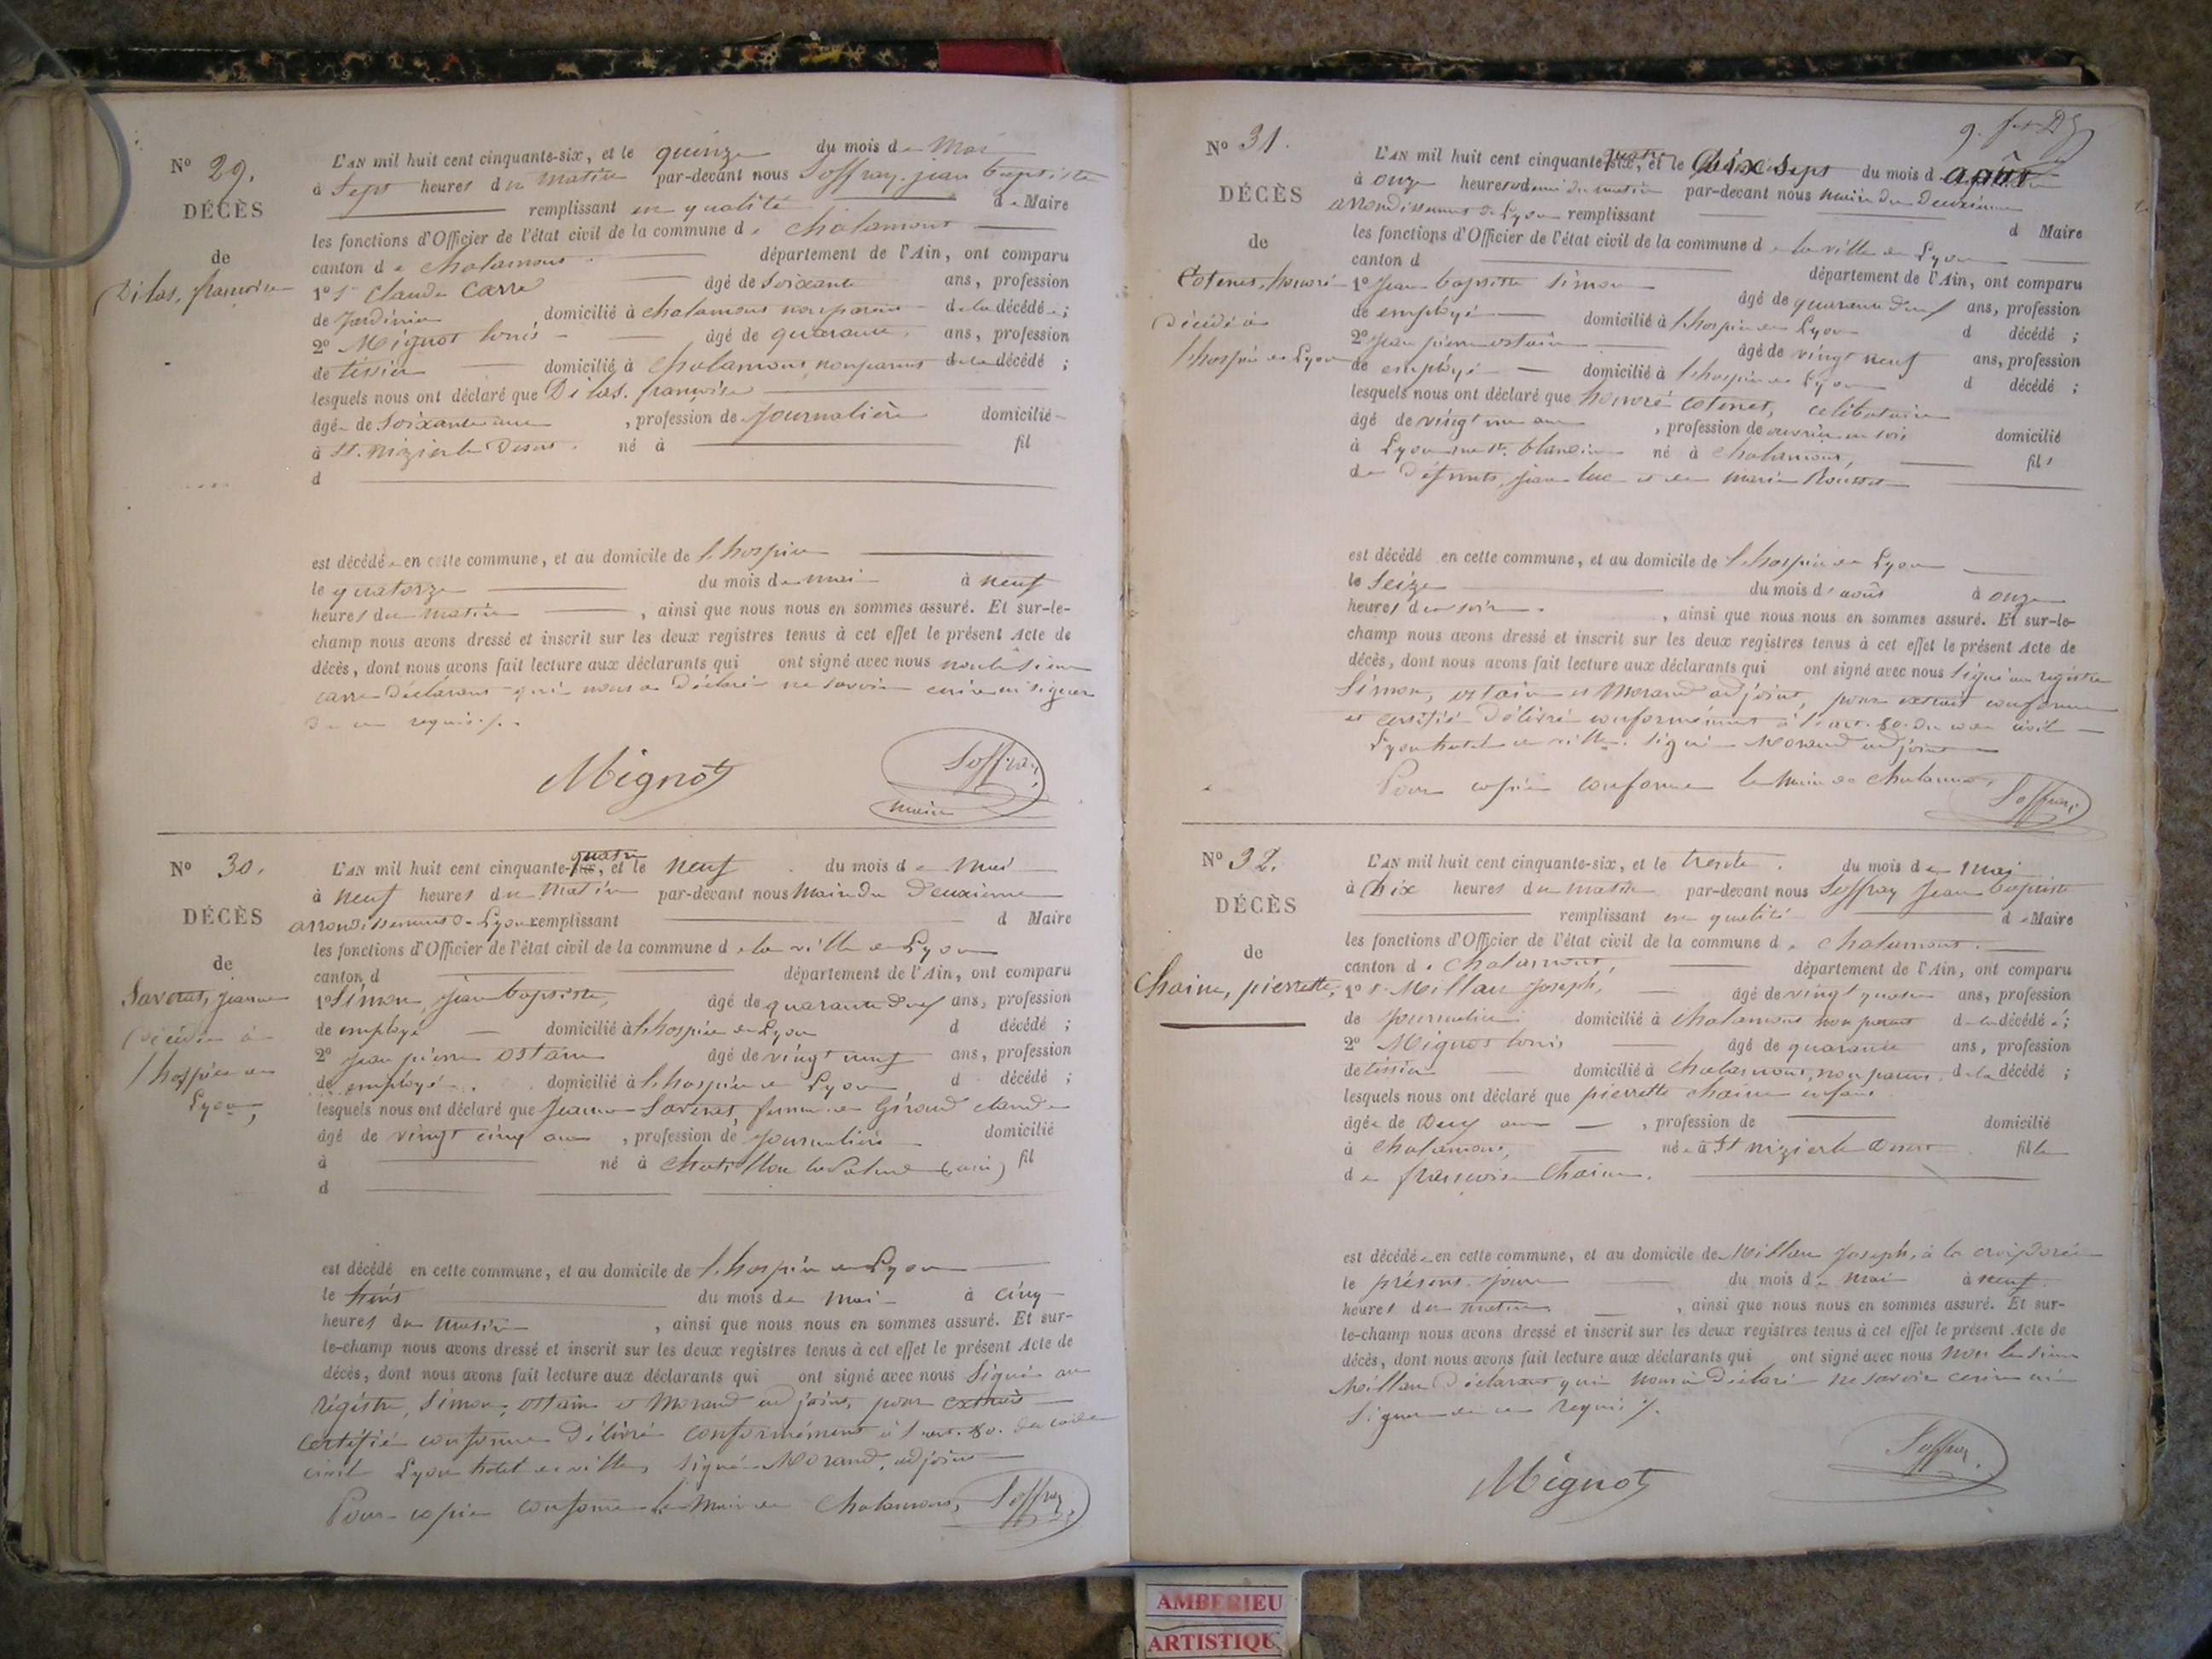 Nº 29.
DÉCÈS
de
Dilas, françoise
L'AN mil huit cent cinquante-six, et le quinze du mois de Mai
à Sept heures du matin par-devant nous Soffray jean baptiste
remplissant en qualité de Maire
les fonctions d'Officier de l'état civil de la commune de Chalamont
canton de Chalamont département de l'Ain, ont comparu
1º Sr Claude Carre âgé de Soixante ans, profession
de Jardinier domicilié à chalamont non parent de la décédée;
2º Mignot Louis âgé de quarante ans, profession
de tissier domicilié à Chalamont, non parent de la décédé;
lesquels nous ont déclaré que Dilas, françoise
âgée de Soixante ans, profession de Journalière domicilié
à St. nizier le Desert né à fil
d
est décédée en cette commune, et au domicile de l'hospice
le quatorze du mois de mai à neuf
heures du matin, ainsi que nous nous en sommes assuré. Et sur-le-
champ nous avons dressé et inscrit sur les deux registres tenus à cet effet le présent Acte de
décès, dont nous avons fait lecture aux déclarants qui ont signé avec nous non le sieur
carre déclarant qui nous a déclaré ne savoir écrire ni signer
de ce requis./.
Mignot
Soffray
maire
Nº 30.
DÉCÈS
de
Jeanne
décédée à
l'hospice de
Lyon
L'AN mil huit cent cinquante-six, quatre et le neuf du mois de Mai
à neuf heures du Matin par-devant nous Maire du Deuxième
arrondissement de Lyon remplissant d Maire
les fonctions d'Officier de l'état civil de la commune de la ville de Lyon
canton d département de l'Ain, ont comparu
1º Simon, jean baptiste, âgé de quarante deux ans, profession
de employé domicilié à l'hospice de Lyon d décédé;
2º Jean pierre ostain âgé de vingt neuf ans, profession
de employé domicilié à l'hospice de Lyon d décédé;
lesquels nous ont déclaré que Jeanne femme de Giraud claude
âgé de vingt cinq ans, profession de journalière domicilié
à né à Chatillon la Palud (ain) fil
d
est décédé en cette commune, et au domicile de l'hospice de Lyon
le huit du mois de Mai à cinq
heures du Matin, ainsi que nous nous en sommes assuré. Et sur-
le-champ nous avons dressé et inscrit sur les deux registres tenus à cet effet le présent Acte de
décès, dont nous avons fait lecture aux déclarants qui ont signé avec nous Signé au
régistre, Simon, ostain et Morand adjoint, pour extrait
certifié conforme Délivré conformément à l'art. 80. du code
civil Lyon hotel de ville, signé Morand, adjoint
Pour copie conforme le Maire de Chalamont, Soffray
Nº 31.
DÉCÈS
de
Cotenet, honoré
Décédé à
l'hospice de Lyon
L'AN mil huit cent cinquante-six, quatre et le Dix Sept du mois d août
à onze heures et demi du matin par-devant nous maire du deuxième
arrondissement de Lyon remplissant d Maire
les fonctions d'Officier de l'état civil de la commune de la ville de Lyon
canton d département de l'Ain, ont comparu
1º Jean baptiste Simon âgé de quarante deux ans, profession
de employé domicilié à l'hospice de Lyon d décédé;
2º Jean pierre ostain âgé de vingt neuf ans, profession
de employé domicilié à l'hospice de Lyon d décédé;
lesquels nous ont déclaré que honoré Cotenet, célibataire
âgé de vingt un ans, profession de ouvrier en soie domicilié
à Lyon rue St. blandine né à Chalamont, fils
de Défunts, jean luc et de marie Rousset
est décédé en cette commune, et au domicile de l'hospice de Lyon
le Seize du mois d'août à onze
heures du soir, ainsi que nous nous en sommes assuré. Et sur-le-
champ nous avons dressé et inscrit sur les deux registres tenus à cet effet le présent Acte de
décès, dont nous avons fait lecture aux déclarants qui ont signé avec nous Signé au régistre
Simon, ostain et Morand adjoint, pour extrait conforme
et certifié Délivré conformément à l'art. 80. du code civil
Lyon hotel de ville. signé Morand adjoint
Pour copie conforme le Maire de Chalamont,
Soffray
Nº 32.
DÉCÈS
de
Chaine, pierrette,
L'AN mil huit cent cinquante-six, et le trente du mois de mai
à Dix heures du matin par-devant nous Soffray Jean baptiste
remplissant en qualité de Maire
les fonctions d'Officier de l'état civil de la commune de Chalamont
canton de Chalamont, département de l'Ain, ont comparu
1º Sr Millan Joseph, âgé de vingt quatre ans, profession
de journalier domicilié à Chalamont non parent de la décédée;
2º Mignot Louis âgé de quarante ans, profession
de tissier domicilié à Chalamont, non parent de la décédé;
lesquels nous ont déclaré que pierrette chaine enfant
âgée de Deux ans, profession de domicilié
à Chalamont, née à St nizier le Desert fille
de françoise Chaine.
est décédée en cette commune, et au domicile de Millan Joseph, à la
le présent jour du mois de mai à neuf
heures du matin, ainsi que nous nous en sommes assuré. Et sur-
le-champ nous avons dressé et inscrit sur les deux registres tenus à cet effet le présent Acte de
décès, dont nous avons fait lecture aux déclarants qui ont signé avec nous Non le sieur
Millan Déclarant qui nous a déclaré ne savoir écrire ni
signer de ce requis /.
Mignot
Soffray
AMBERIEU
ARTISTIQUE